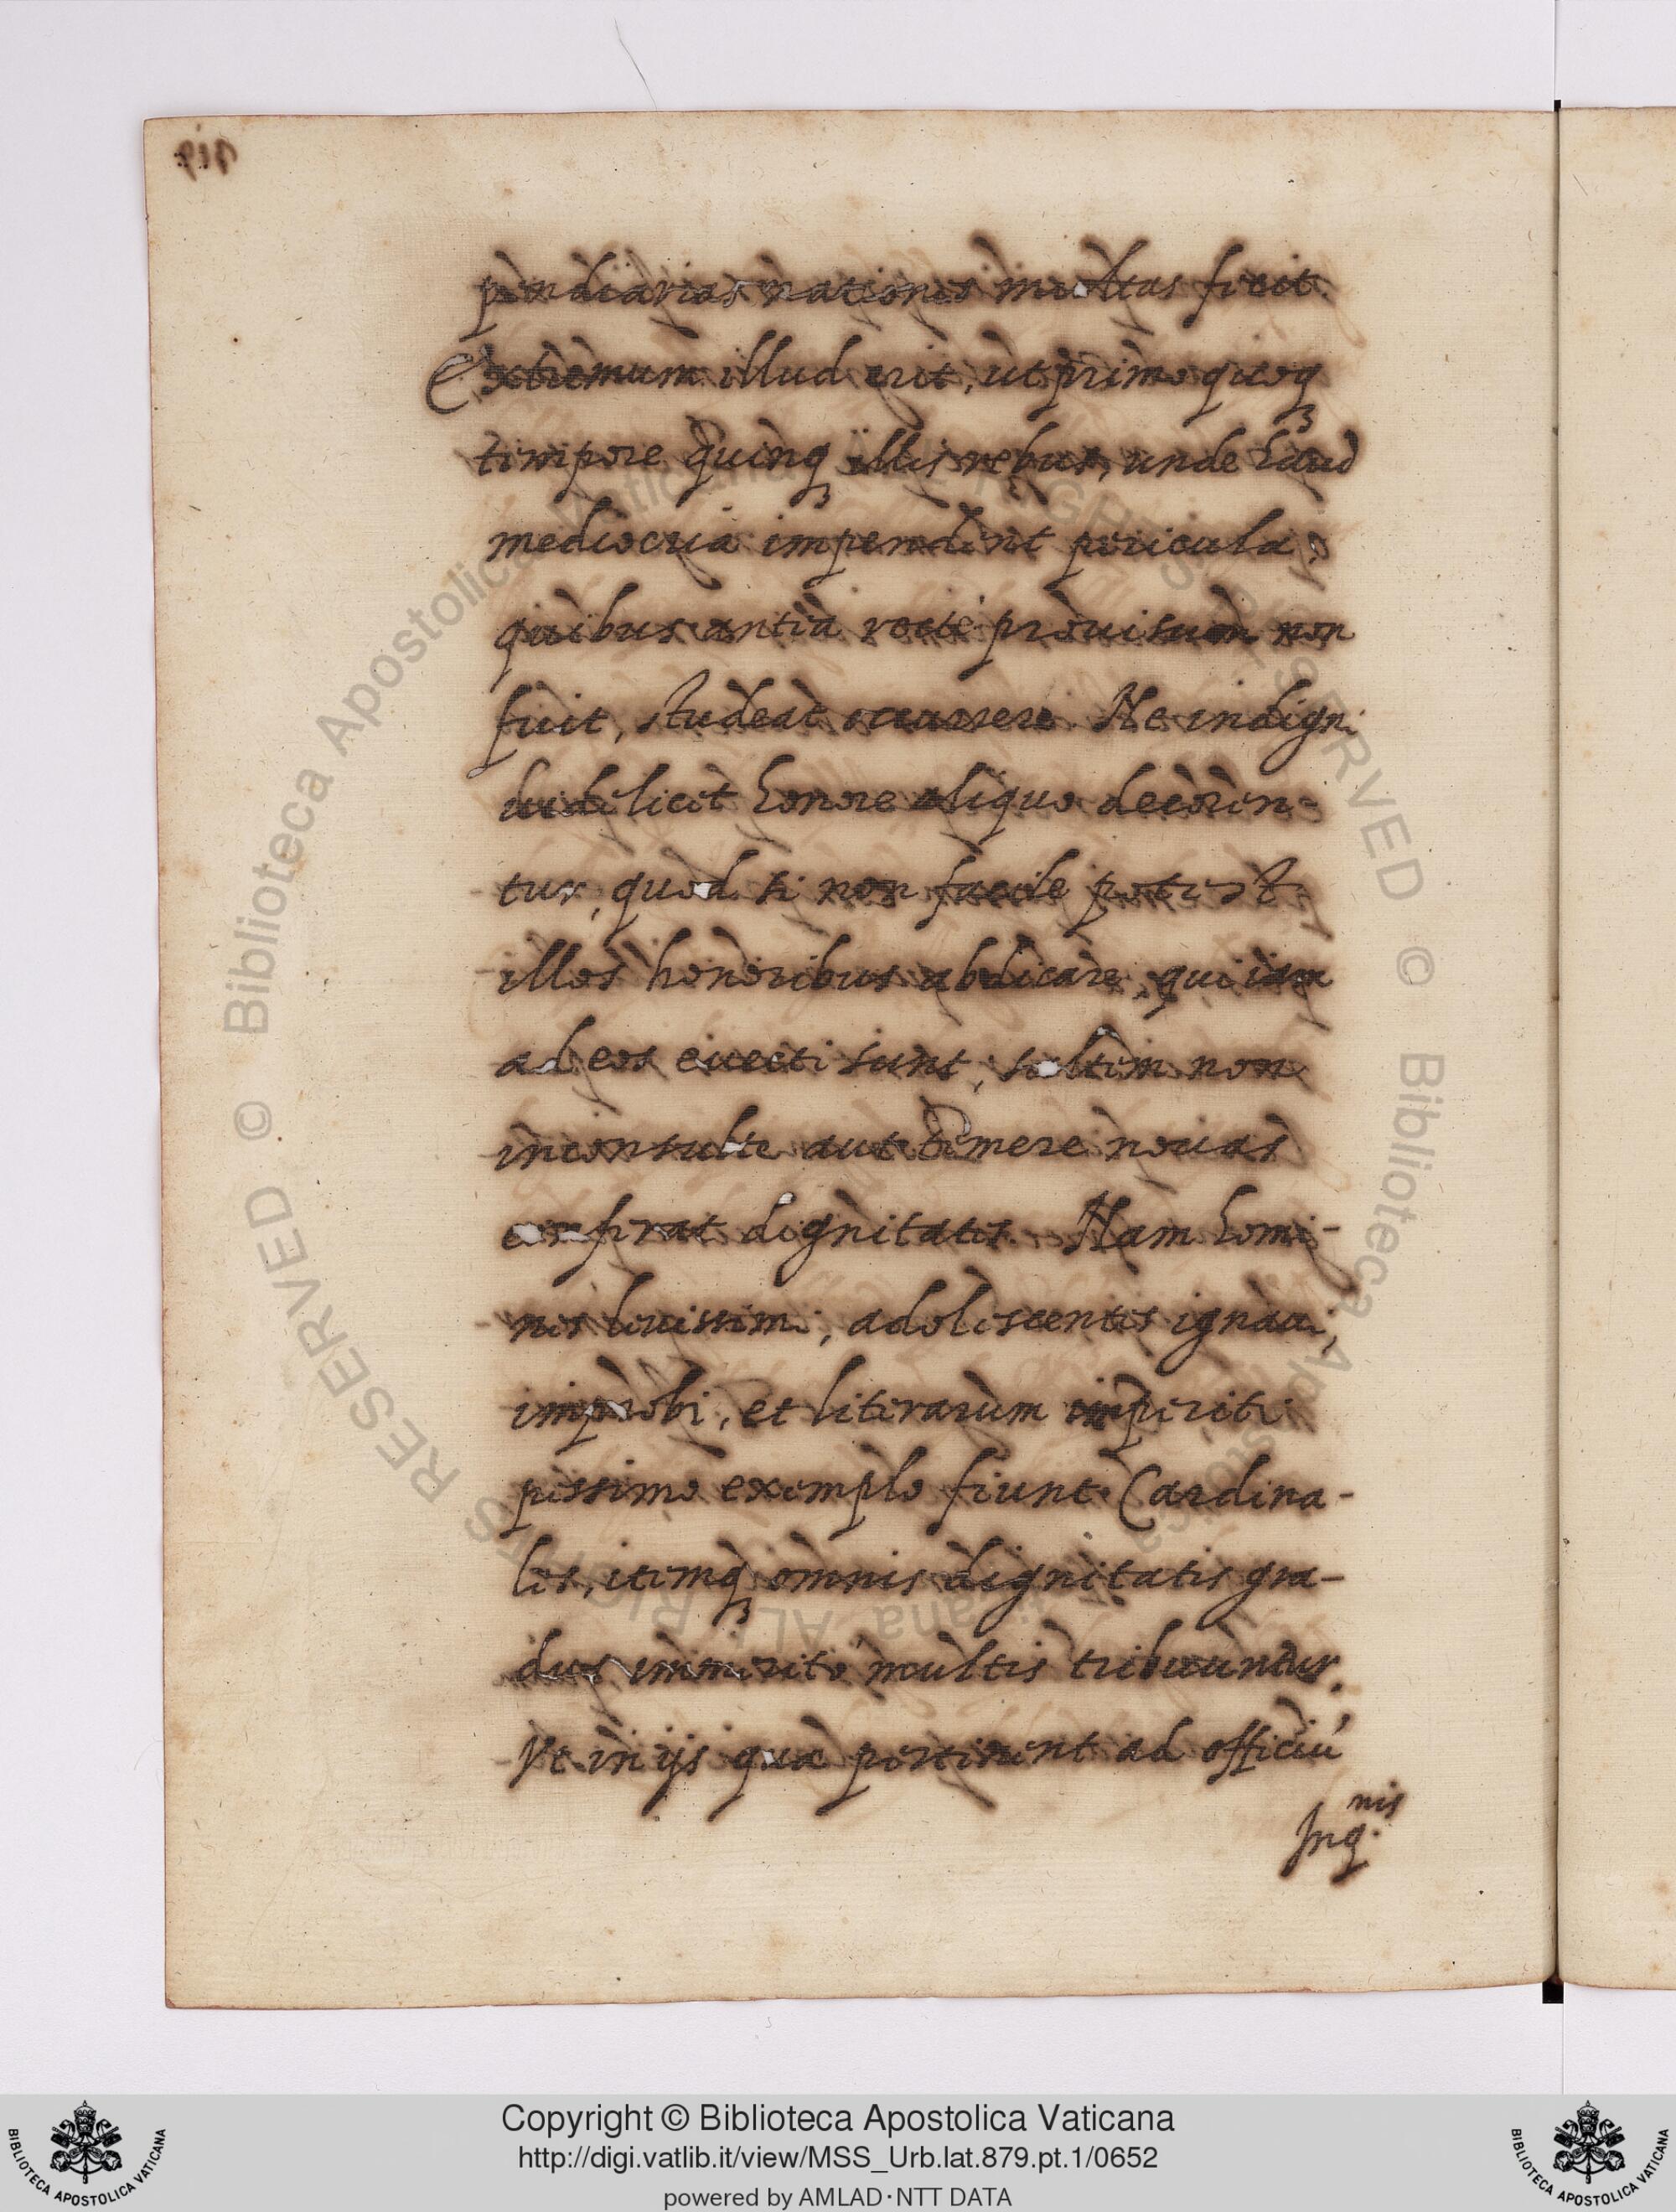 pendiarias nationes multas fecit.
Extremum illud erit, ut primo quoq3
tempore quinq3 illis rebus, unde haud
mediocria impendent pericula,
quibus antea recte prouisum non
fuit, studeat occurrere. Ne indigni
videlicet honore aliquo decoren-
tur, quod si non facile potest
illos honoribus abdicare, qui iam
ad eos euecti sunt, saltem non
inconsulte aut temere nouas
conferat dignitates. Nam homi-
nes leuissimi, adolescentes ignaui,
improbi, et literarum imperiti
pessimo exemplo fiunt Cardina-
les, itemq3 omnis dignitatis gra-
dus immerito multis tribuuntur.
Vt in ijs quæ pertinent ad officiũ
Inq.nis
© Biblioteca Apostolica Vaticana ALL RIGHTS RESERVED
© Biblioteca Apostolica Vaticana ALL RIGHTS RESERVED
BIBLIOTECA APOSTOLICA VATICANA
Copyright © Biblioteca Apostolica Vaticana
http://digi.vatlib.it/view/MSS_Urb.lat.879.pt.1/0652
powered by AMLAD·NTT DATA
BIBLIOTECA APOSTOLICA VATICANA